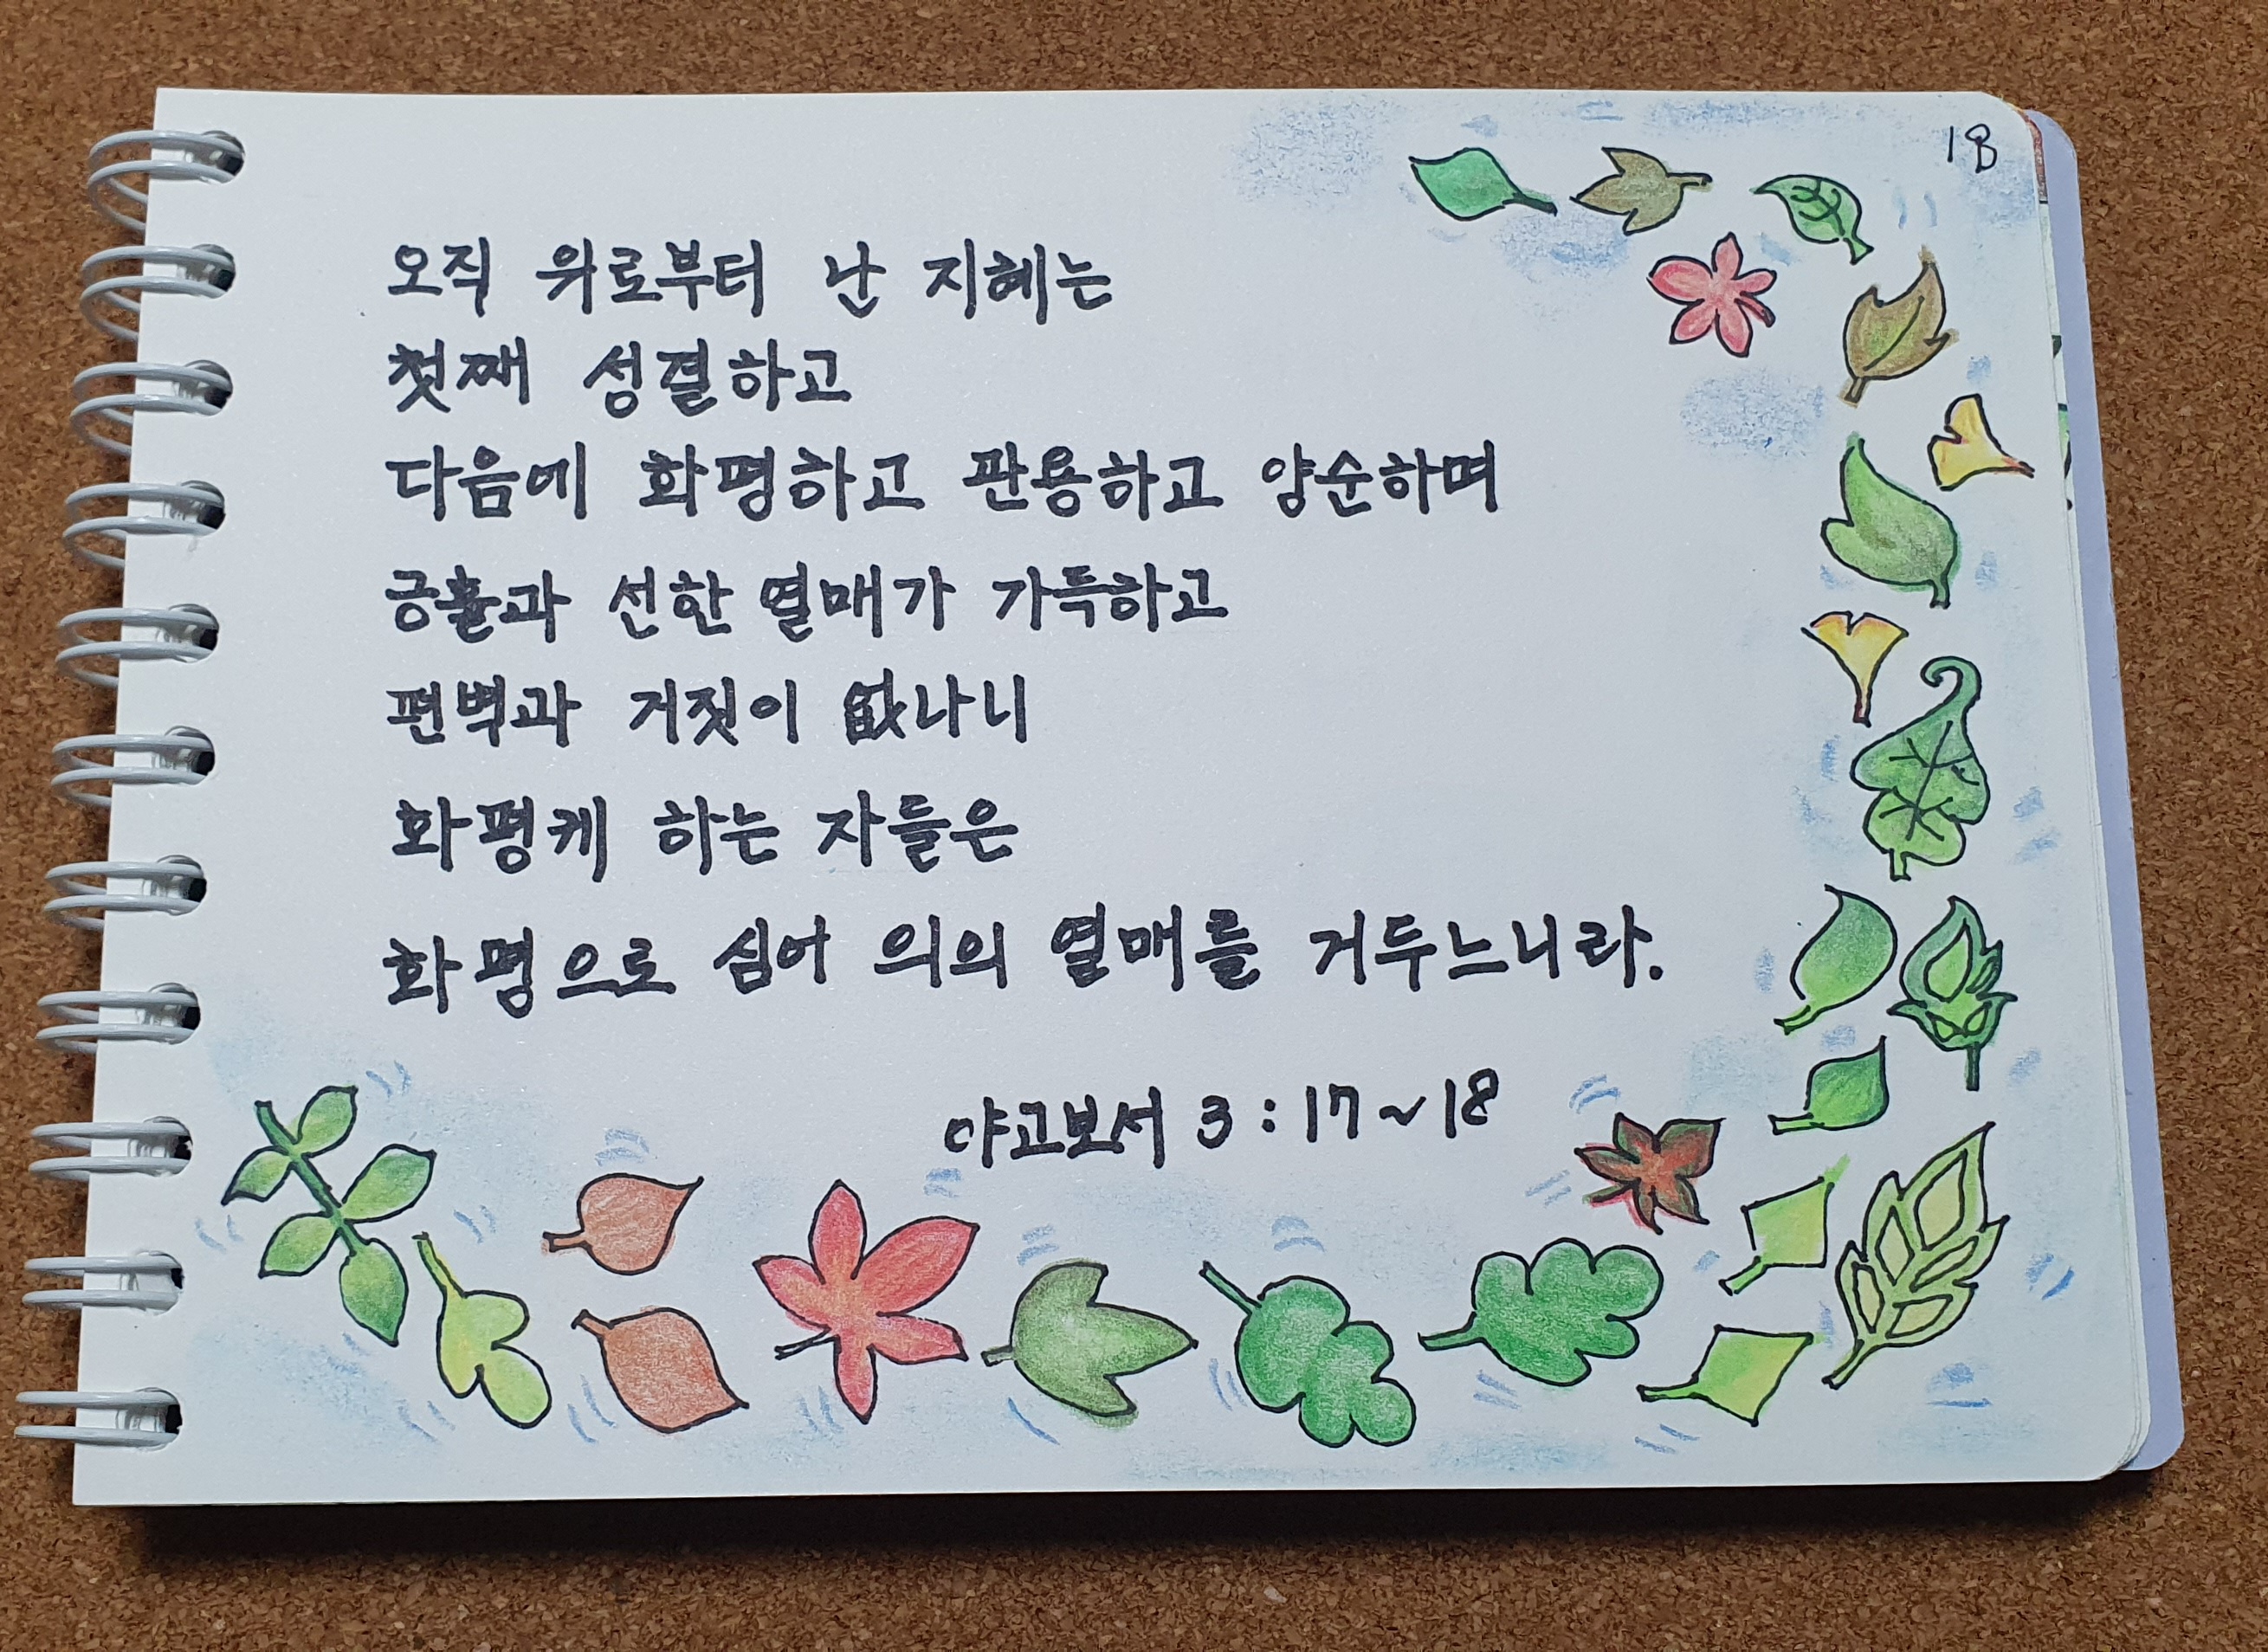 18
오직 위로부터 난 지혜는
첫째 성결하고
다음에 화평하고 관용하고 양순하며
긍휼과 선한 열매가 가득하고
편벽과 거짓이 없나니
화평케 하는 자들은
화평으로 심어 의의 열매를 거두느니라.
야고보서 3:17~18